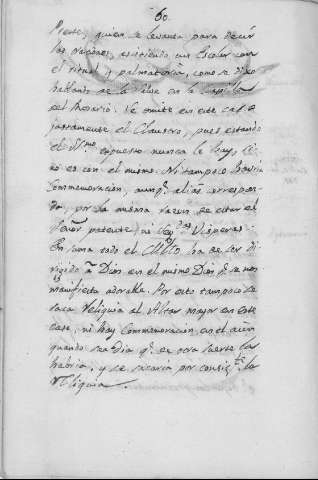 60.
Preste, quien se levanta para decir
las oraciones, asistiendo un Escolar con
el ritual y palmatoria, como se dixo
hablando de la Salve en la Capilla
del Rosario. Se omite en este caso
justamente el Claustro, pues estando
el Sr.mo expuesto nunca le hay, si
no es con el mismo. Ni tampoco havria
Commemoracion, aunq.e alias correspon
da, por la misma razon de estar el
Señor patente, ni hay 2.as Visperas.
En suma todo el Culto ha de ser di
rigido a Dios en el mismo Dios q.e se nos
manifiesta adorable. Por esto tampoco se
saca Reliquia al Altar mayor en este
caso, ni hay Commemoracion en el
quando sea dia q.e de otra suerte las
habria, y se sacaria por consig.te la
Reliquia.